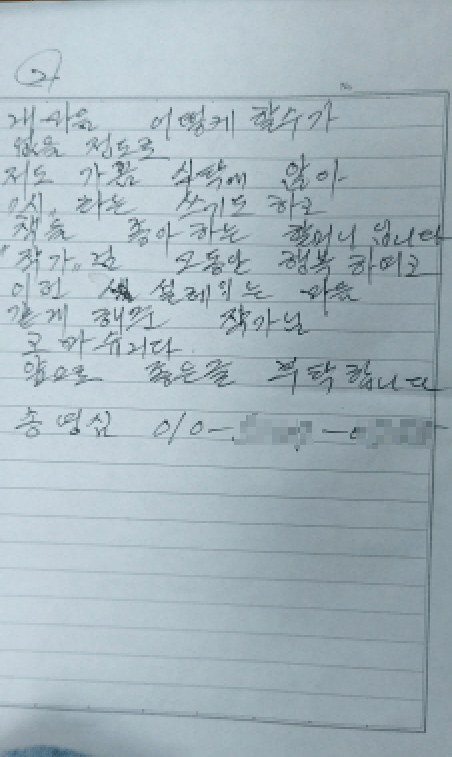 2
내 마음 어떻게 할수가
없을 정도로
저도 가끔 식탁에 앉아
"시" 라는 쓰기도 하고
책을 좋아하는 할머니 입니다
"작가"님 오동안 행복 하며고
이런 설레이는 마음
같게 해주 작가님
고마습니다
앞으로 좋은글 부탁합니다
송영심 010-